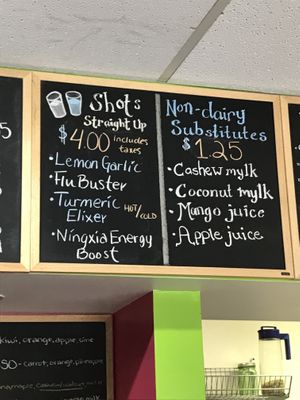 Shots
Straight Up
$4.00 includes taxes
• Lemon Garlic
• Flu Buster
• Turmeric
Elixer HOT/COLD
• Ningxia Energy
Boost
Non-dairy
Substitutes
$1.25
• Cashew mylk
• Coconut mylk
• Mango juice
• Apple juice
kiwi, orange, apple, lime
SO - carrot, orange, pineapple